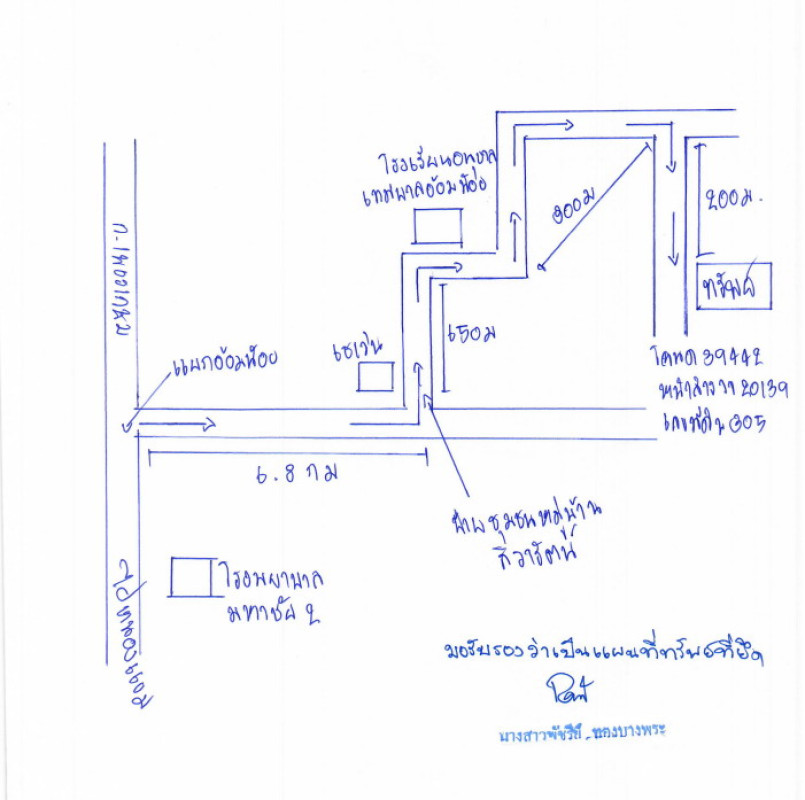 โรงเรียนอนุบาล
เทศบาลอ้อมน้อย
300ม
200ม.
ทรัพย์
ถ.เพชรเกษม
แยกอ้อมน้อย
เซเว่น
650ม
โฉนด 39442
หน้าสำรวจ 20139
เลขที่ดิน 305
6.8 กม
ป้ายชุมชนหมู่บ้าน
ทิวารัตน์
โรงพยาบาล
มหาชัย 2
ไปหนองแขม
ขอรับรองว่าเป็นแผนที่ทรัพย์ที่ยึด
นางสาวพัชรีย์ ทองบางพระ